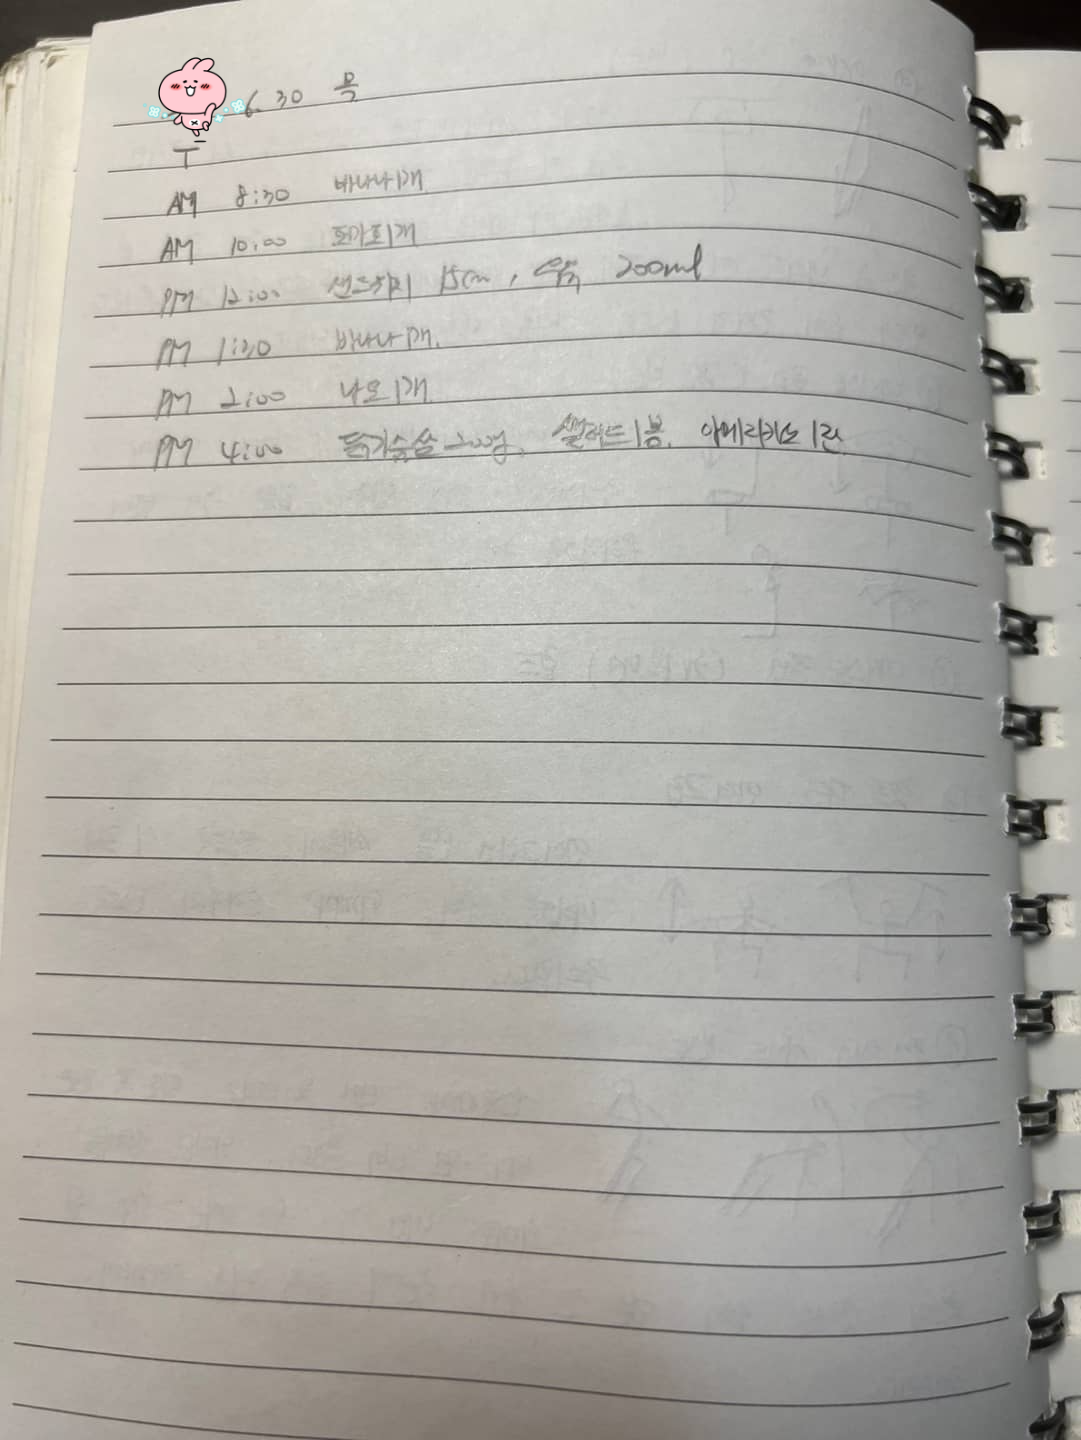 6. 30 목
T
AM 8:30 바나나 1개
AM 10:00 토마토 1개
PM 12:00 샌드위치 15cm, 우유 200ml
PM 1:30 바나나 1개.
PM 2:00 1개
PM 4:00 닭가슴살 200g, 샐러드 1봉, 아메리카노 1잔